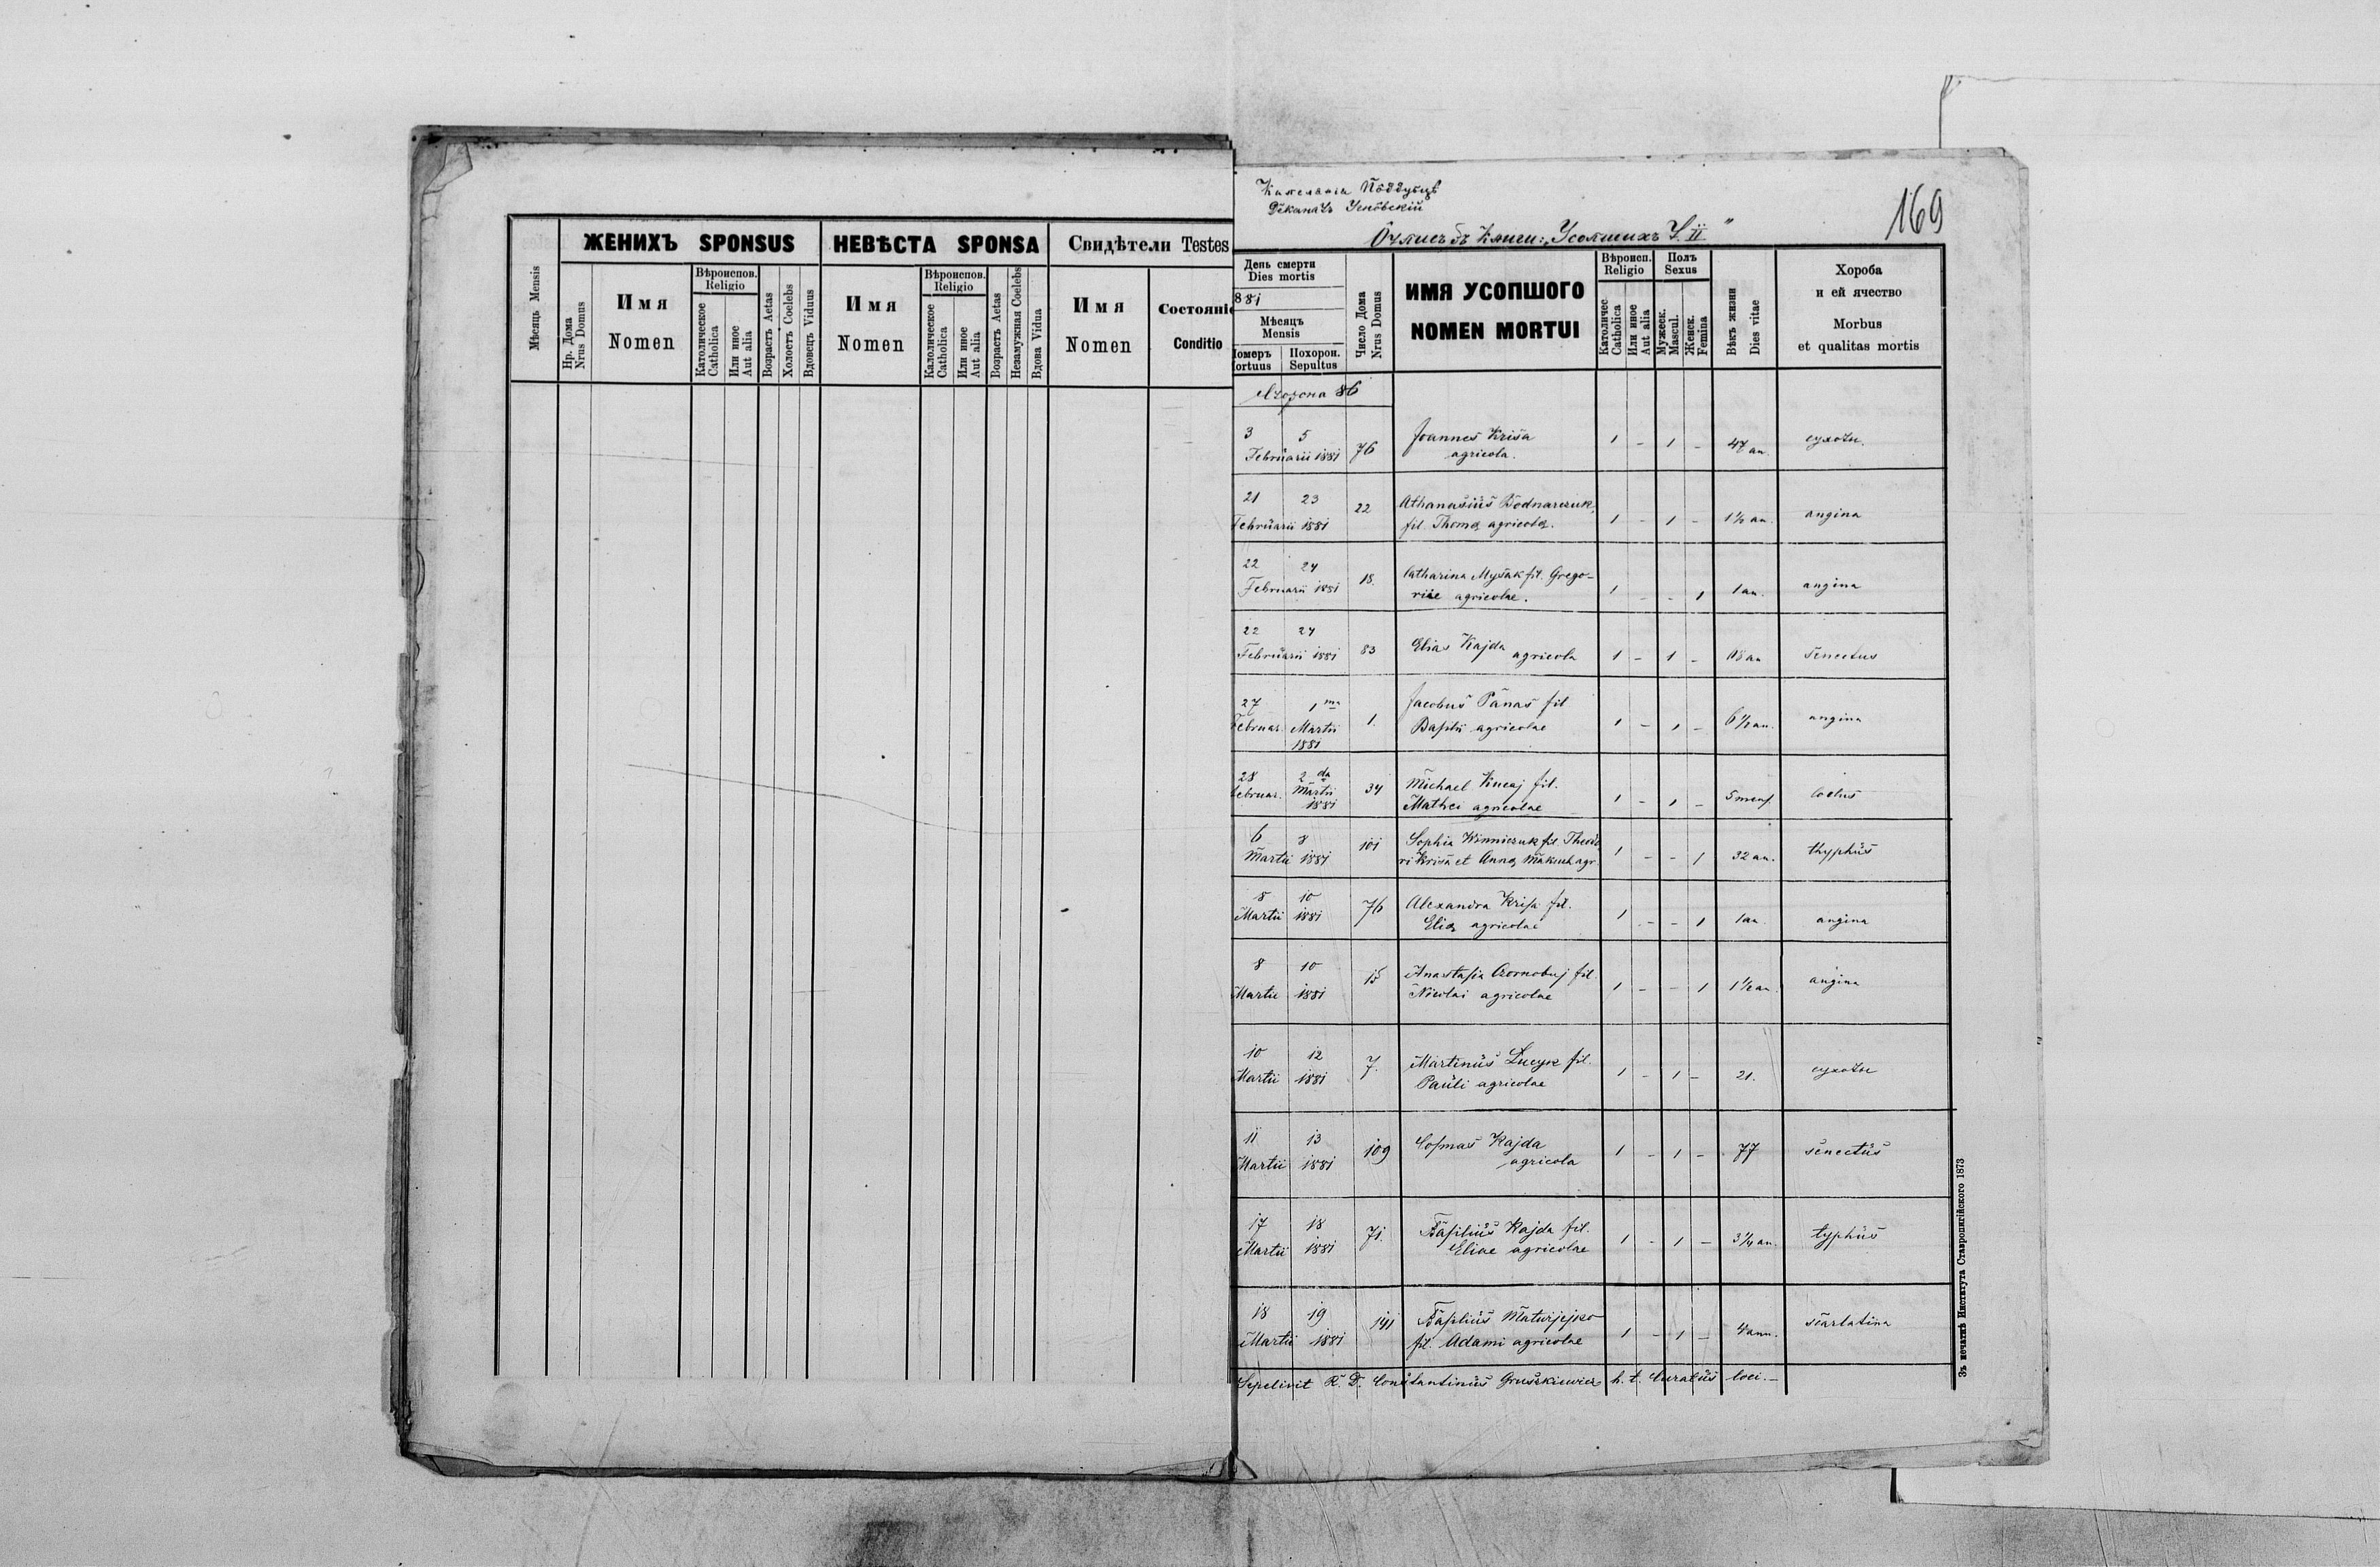 169
Отписъ зъ Книги: „Усопшихъ Т. II"
ЖЕНИХЪ SPONSUS
НЕВѢСТА SPONSA
Свидѣтели Testes
Мѣсяць Mensis
Нр. Дома
Nrus Domus
Имя
Nomen
Вѣроиспов.
Religio
Католическое
Catholica
Или иное
Aut alia
Возрастъ Aetas
Холостъ Coelebs
Вдовецъ Viduus
Имя
Nomen
Вѣроиспов.
Religio
Калолическое
Catholica
Или иное
Aut alia
Возрастъ Aetas
Незамужная Coelebs
Вдова Vidua
Имя
Nomen
Состояніе
Conditio
День смерти
Dies mortis
881
Мѣсяцъ
Mensis
Номеръ
Mortuus
Похорон.
Sepultus
Число Дома
Nrus Domus
ИМЯ УСОПШОГО
NOMEN MORTUI
Вѣроисп.
Religio
Католичес
Catholica
Или иное
Aut alia
Полъ
Sexus
Мужеск.
Mascul.
Женск.
Femina
Вѣкъ жизни
Dies vitae
Хороба
и ей ячество
Morbus
et qualitas mortis
86
3 5 76 Joannes Krisa 1 - 1 - 47 an. сухоты
Februarii 1881 agricola.
21 23 22 Athanasius Bodnarczuk, 1 - 1 - 1½ an. angina
Februarii 1881 fil. Thomæ agricolæ.
22 24 18. Catharina Mysak fil. Grego- 1 - - 1 1 an. angina
Februarii 1881 riie agricolae.
22 24 83 Elias Kajda 1 - 1 - an senectus
Februarii 1881 agricola
27 1ma 1. Jacobus Panas fil 1 - 1 - 6½ an. angina
Februar. Martii Basilii agricolae
1881
28 2da 34 Michael fil. 1 - 1 - 5 mens.
Februar. Martii Mathei agricolae
1881
6 8 101 Sophia Winniczuk fil. Theodo 1 - - 1 32 an. thyphus
Martii 1881 ri Krisa et Annæ Makuch agr.
8 10 76 Alexandra Krisa fil. 1 - - 1 1 an. angina
Martii 1881 Eliæ agricolae
8 10 15 Anastasia Czornobuj fil. 1 - - 1 1½ an. angina
Martii 1881 Nicolai agricolae
10 12 7. Martinus Lucyk fil. 1 - 1 - 21. сухоты
Martii 1881 Pauli agricolae
11 13 109 Cosmas Kajda 1 - 1 - 77 senectus
Martii 1881 agricola
17 18 71. Basilius Kajda fil. 1 - 1 - 3¼ an. typhus
Martii 1881 Eliae agricolae
18 19 141 Basilius Maturjejko 1 - 1 - 4 ann. scarlatina
Martii 1881 fil. Adami agricolae
Sepelivit R. D. Constantinus Gruszkiewicz h. t. Curatus loci.-
Зъ печатнѣ Института Ставропигійского 1873